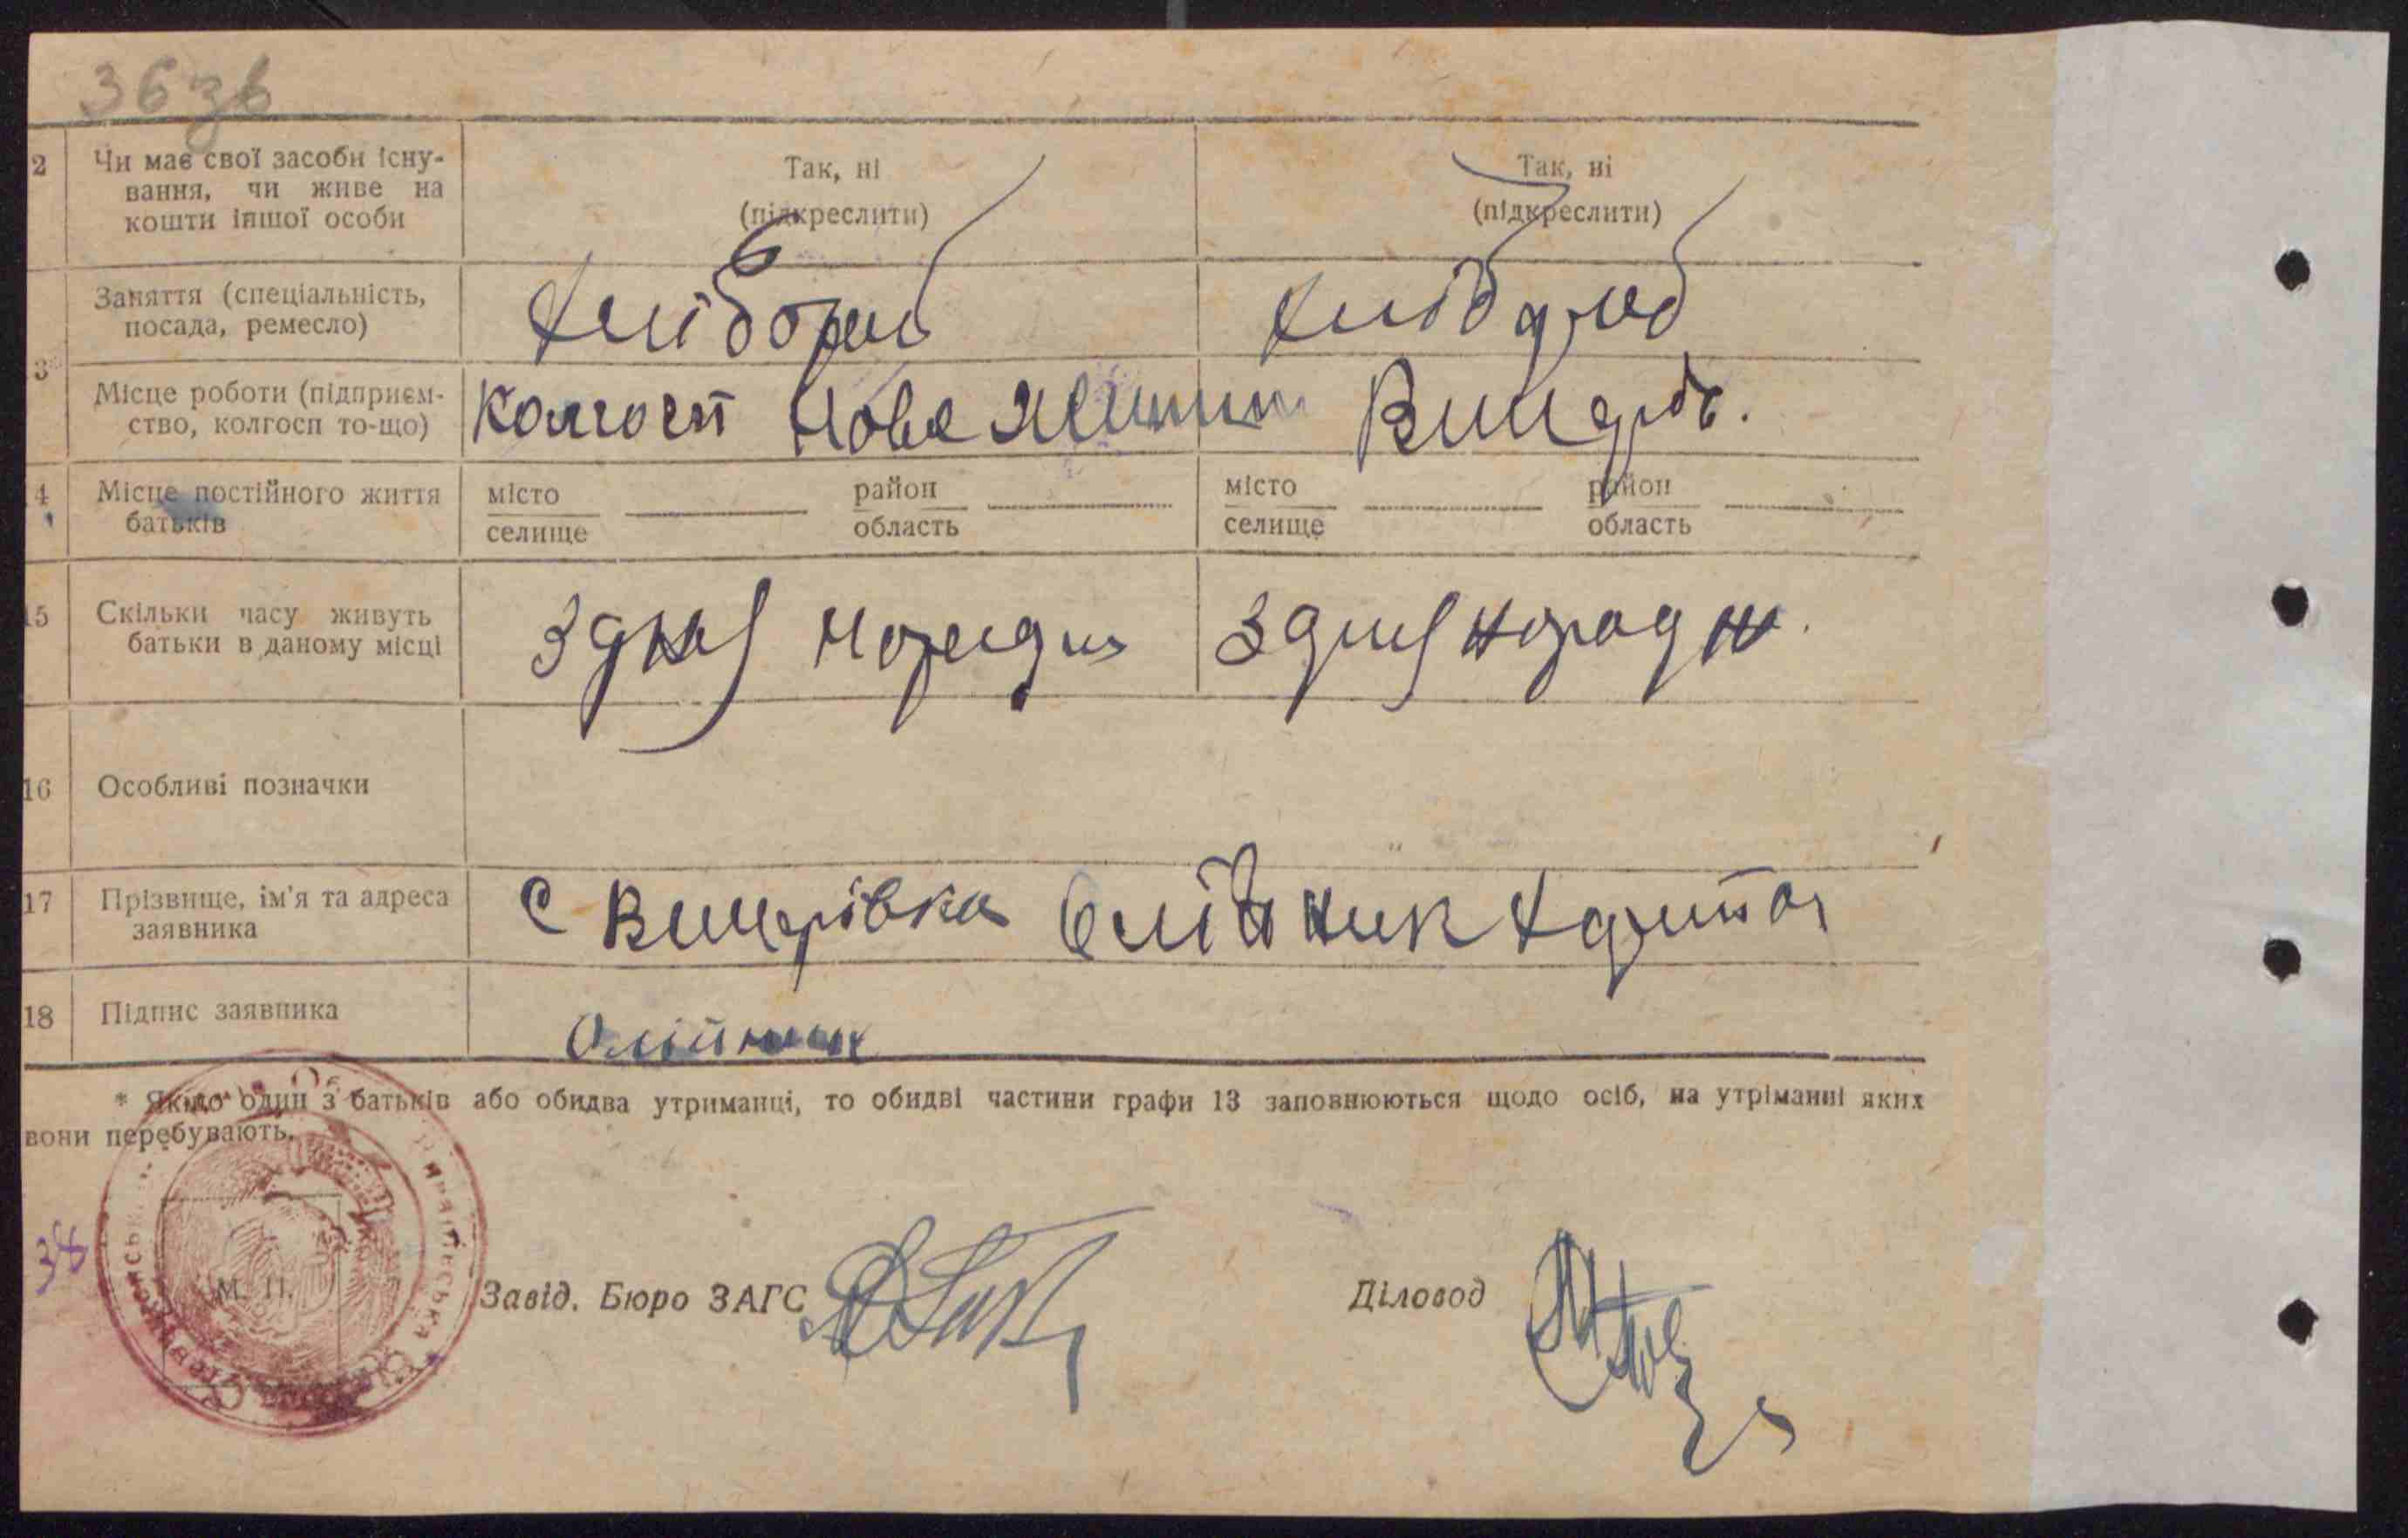 36зв
2 Чи має свої засоби існу-
вання, чи живе на
кошти іншої особи
Так, ні
(підкреслити)
Так, ні
(підкреслити)
3
Заняття (спеціальність,
посада, ремесло)
Хлібороб
Хлібороб
Місце роботи (підприєм-
ство, колгосп то-що)
Колгосп Нове Життя
4 Місце постійного життя
батьків
місто
селище
район
область
місто
селище
район
область
15 Скільки часу живуть
батьки в даному місці
З дня
З дня народж.
16 Особливі позначки
17 Прізвище, ім'я та адреса
заявника
С Олійник
18 Підпис заявника
Олійник
* Якщо один з батьків або обидва утриманці, то обидві частини графи 13 заповнюються щодо осіб, на утріманні яких
вони перебувають.
38
М. П.
Завід. Бюро ЗАГС
Діловод